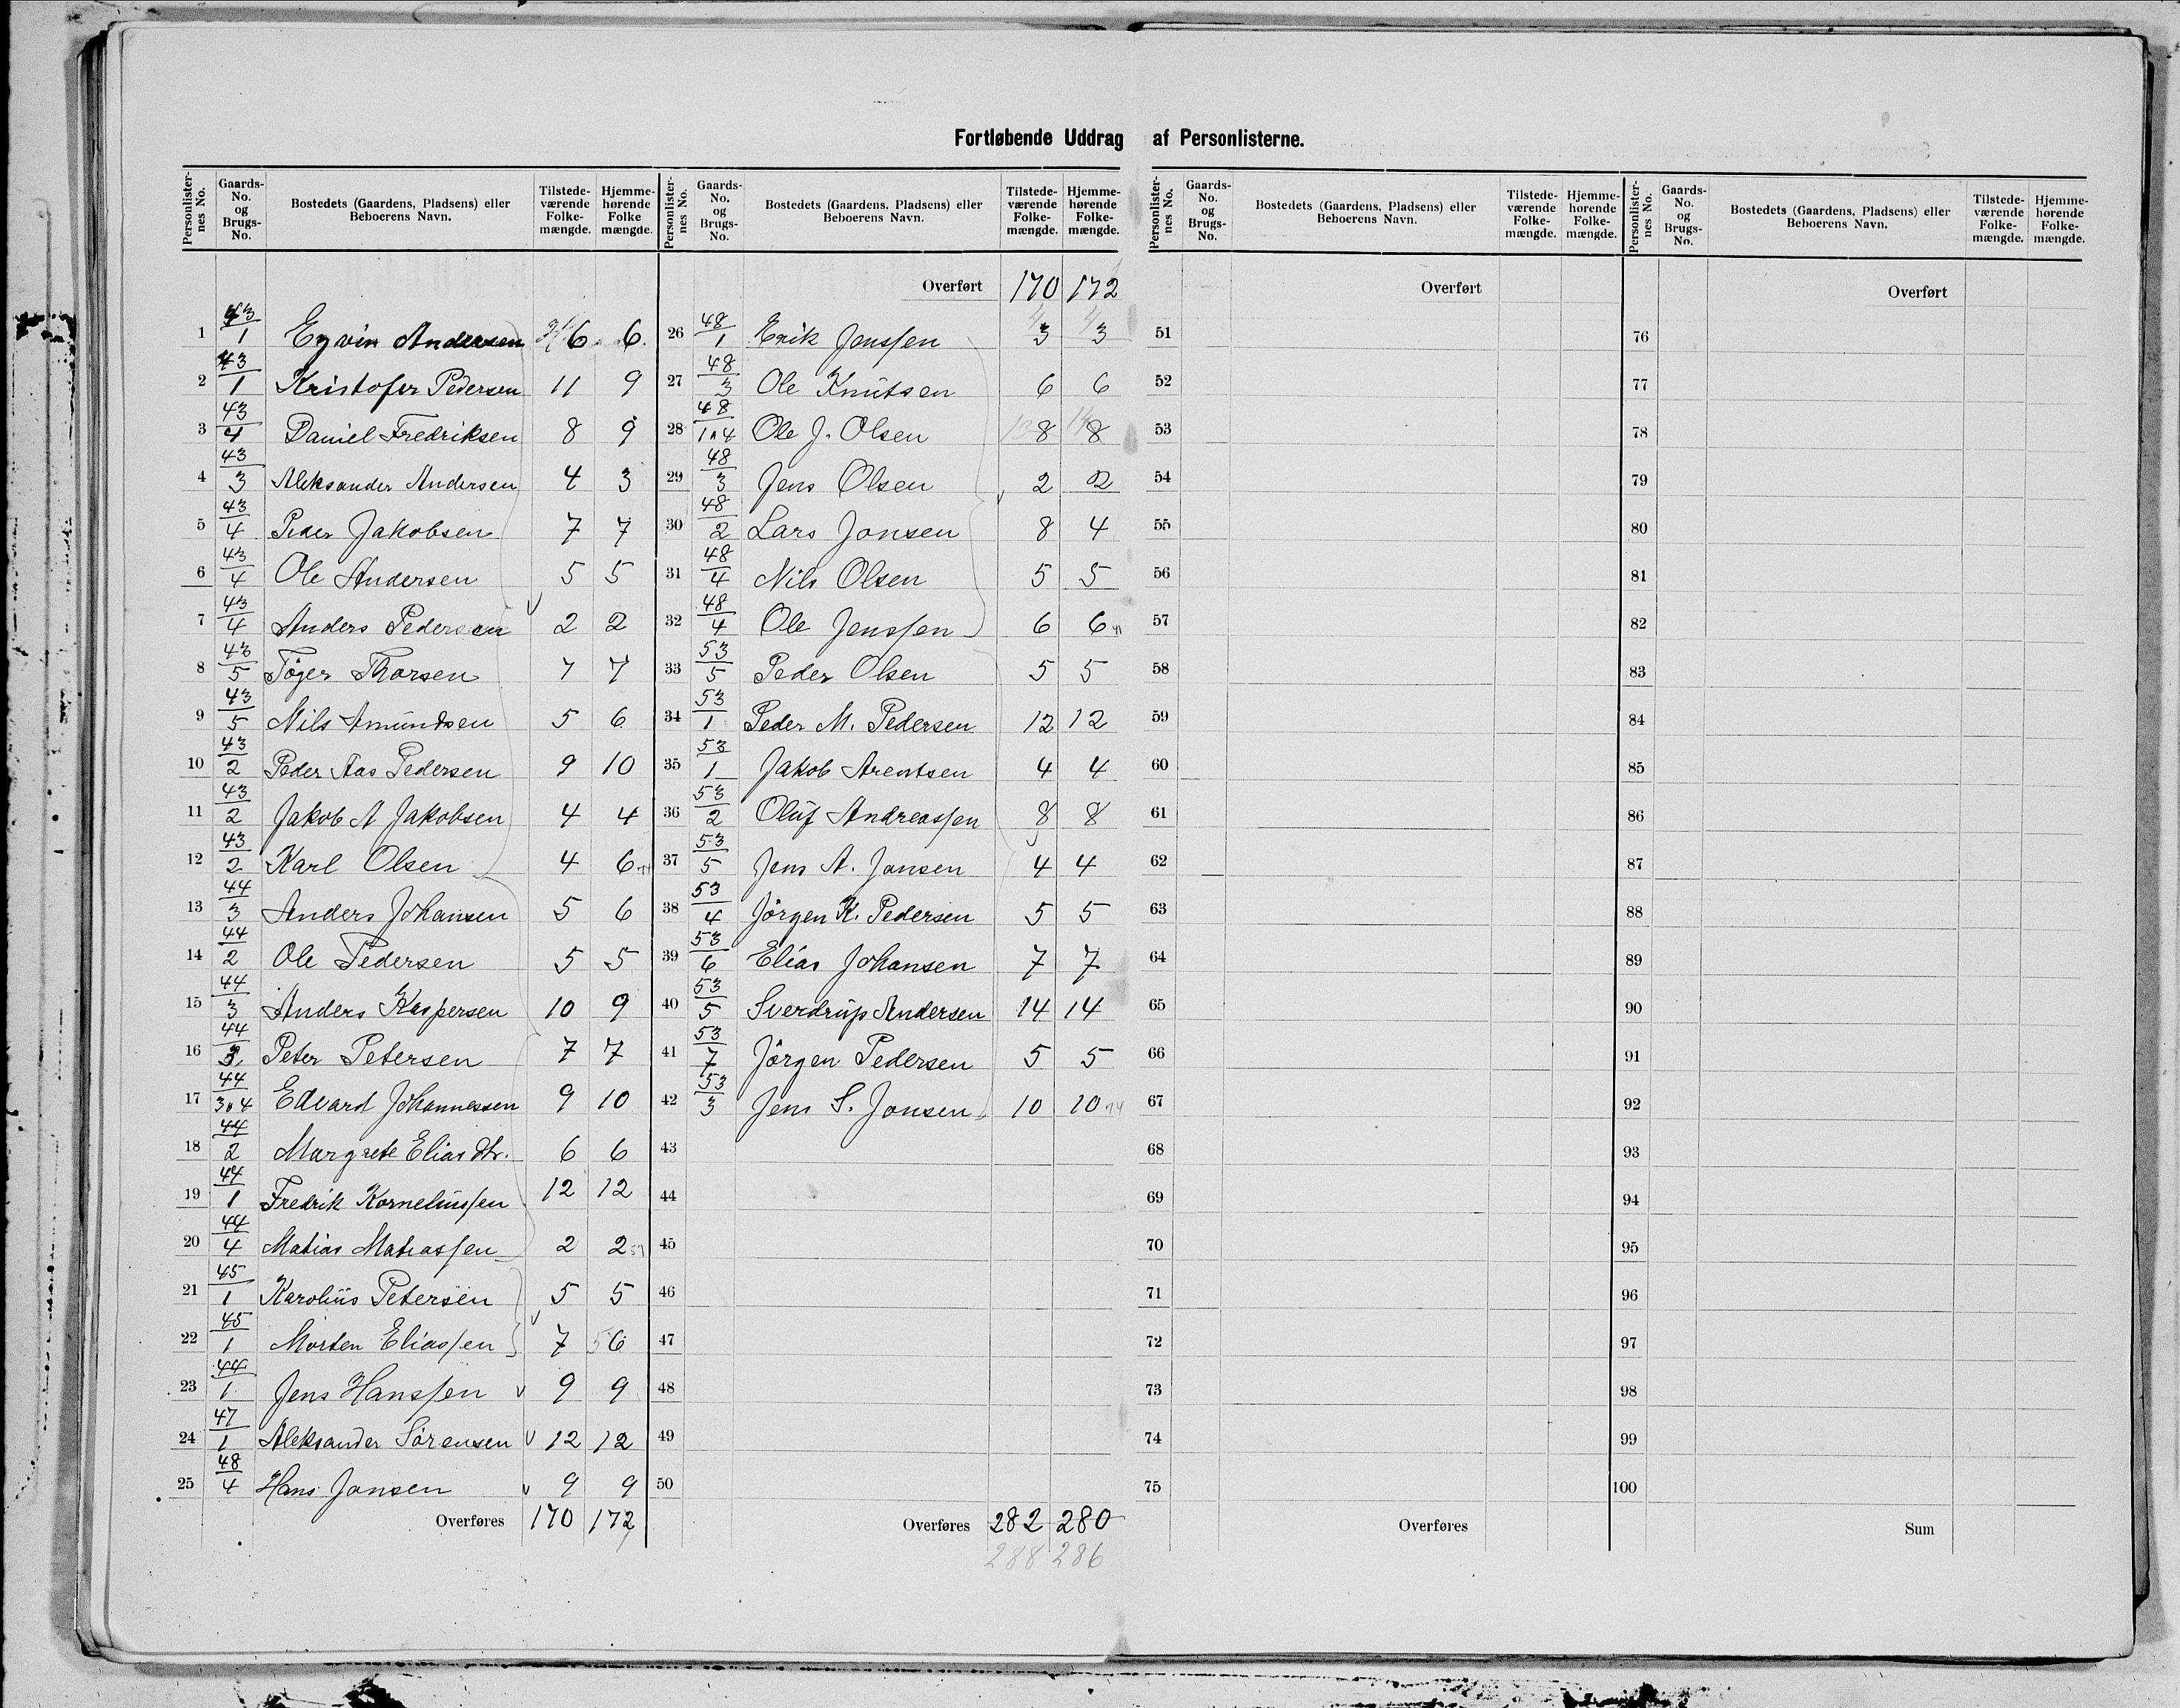 Fortløbende Uddrag af Personlisterne.
Personlisternes No. | Gaards-No. og Brugs-No. | Bostedets (Gaardens, Pladsens) eller Beboerens Navn. | Tilstedeværende Folkemængde. | Hjemmehørende Folkemængde.
1 | 43/1 | Eyvin Andersen | 6 | 6
2 | 43/1 | Kristofer Pedersen | 11 | 9
3 | 43/4 | Daniel Fredriksen | 8 | 9
4 | 43/3 | Aleksander Andersen | 4 | 3
5 | 43/4 | Peder Jakobsen | 7 | 7
6 | 43/4 | Ole Andersen | 5 | 5
7 | 43/4 | Anders Pedersen | 2 | 2
8 | 43/5 | Töger Thorsen | 7 | 7
9 | 43/5 | Nils Amundsen | 5 | 6
10 | 43/2 | Peder Aas Pedersen | 9 | 10
11 | 43/2 | Jakob A Jakobsen | 4 | 4
12 | 43/2 | Karl Olsen | 4 | 6
13 | 44/3 | Anders Johansen | 5 | 6
14 | 44/2 | Ole Pedersen | 5 | 5
15 | 44/3 | Anders Kaspersen | 10 | 9
16 | 44/3 | Peter Petersen | 7 | 7
17 | 44/3 4 | Edvard Johannessen | 9 | 10
18 | 44/2 | Margrete Elias dtr. | 6 | 6
19 | 44/1 | Fredrik Kornelinssen | 12 | 12
20 | 44/4 | Matias Matiassen | 2 | 2
21 | 45/1 | Karolius Petersen | 5 | 5
22 | 45/1 | Morten Eliassen | 7 | 6
23 | 44/1 | Jens Hanssen | 9 | 9
24 | 47/1 | Aleksander Sörensen | 12 | 12
25 | 48/4 | Hans Jonsen | 9 | 9
Overføres | 170 | 172
Personlisternes No. | Gaards-No. og Brugs-No. | Bostedets (Gaardens, Pladsens) eller Beboerens Navn. | Tilstedeværende Folkemængde. | Hjemmehørende Folkemængde.
Overført | 170 | 172
26 | 48/1 | Erik Jenssen | 3 | 3
27 | 48/3 | Ole Knutsen | 6 | 6
28 | 48/1 4 | Ole J. Olsen | 8 | 8
29 | 48/3 | Jens Olsen | 2 | 2
30 | 48/2 | Lars Jonsen | 8 | 4
31 | 48/4 | Nils Olsen | 5 | 5
32 | 48/4 | Ole Jenssen | 6 | 6
33 | 53/5 | Peder Olsen | 5 | 5
34 | 53/1 | Peder M. Pedersen | 12 | 12
35 | 53/1 | Jakob Arentsen | 4 | 4
36 | 53/2 | Oluf Andreassen | 8 | 8
37 | 53/5 | Jens A. Jansen | 4 | 4
38 | 53/4 | Jörgen K. Pedersen | 5 | 5
39 | 53/6 | Elias Johansen | 7 | 7
40 | 53/5 | Sverdrup Andersen | 14 | 14
41 | 53/7 | Jörgen Pedersen | 5 | 5
42 | 53/3 | Jens S. Jonsen | 10 | 10
43
44
45
46
47
48
49
50
Overføres | 282 | 280
288 | 286
Personlisternes No. | Gaards-No. og Brugs-No. | Bostedets (Gaardens, Pladsens) eller Beboerens Navn. | Tilstedeværende Folkemængde. | Hjemmehørende Folkemængde.
Overført
51
52
53
54
55
56
57
58
59
60
61
62
63
64
65
66
67
68
69
70
71
72
73
74
75
Overføres
Personlisternes No. | Gaards-No. og Brugs-No. | Bostedets (Gaardens, Pladsens) eller Beboerens Navn. | Tilstedeværende Folkemængde. | Hjemmehørende Folkemængde.
Overført
76
77
78
79
80
81
82
83
84
85
86
87
88
89
90
91
92
93
94
95
96
97
98
99
100
Sum